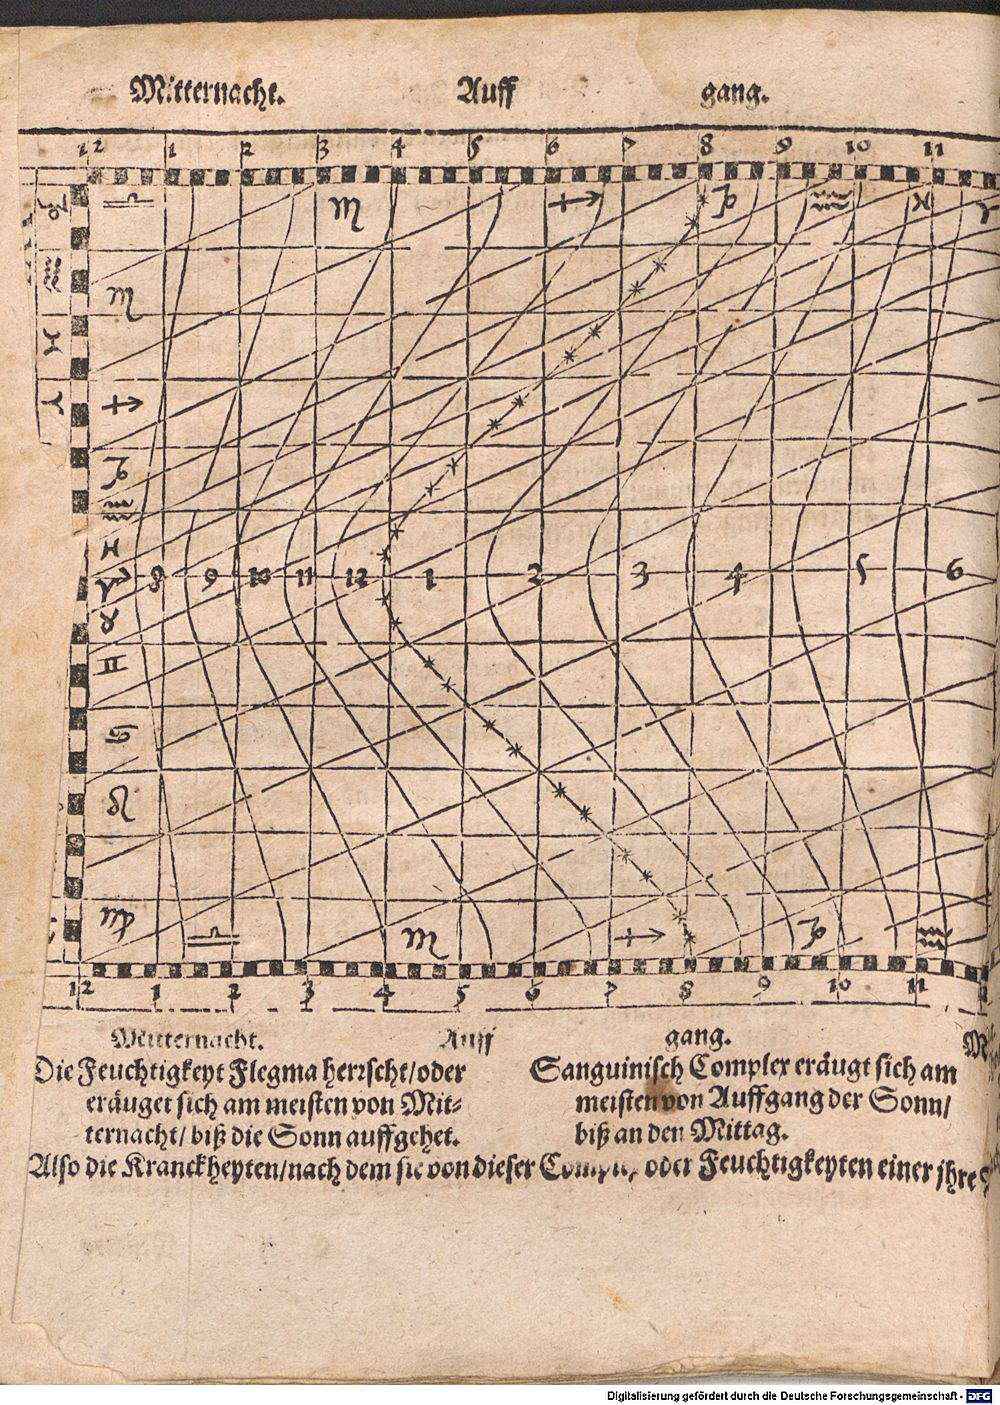 Mitternacht. Auff gang.
12 1 2 3 4 5 6 7 8 9 10 11
♎ ♏ ♐ ♑ ♒ ♓ ♈
♑ ♒ ♓ ♈
♏
♐
♑
♒
♓
♈ 8 9 10 11 12 1 2 3 4 5 6
♉
♊
♋
♌
♍ ♎ ♏ ♐ ♑ ♒
12 1 2 3 4 5 6 7 8 9 10 11
Mitternacht. Auff gang.
Die Feuchtigkeyt Flegma herrscht/oder
eräuget sich am meisten von Mit⸗
ternacht/ biß die Sonn auffgehet.
Sanguinisch Complex eräugt sich am
meisten von Auffgang der Sonn/
biß an den Mittag.
Also die Kranckheyten/nach dem sie von dieser oder Feuchtigkeyten einer jhre
Digitalisierung gefördert durch die Deutsche Forschungsgemeinschaft - DFG